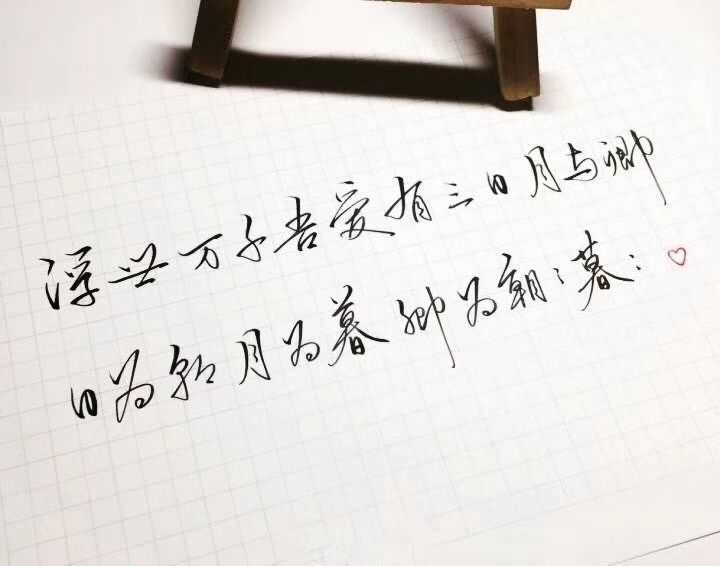 浮世万千吾爱有三日月与卿
日为朝月为暮卿为朝々暮々